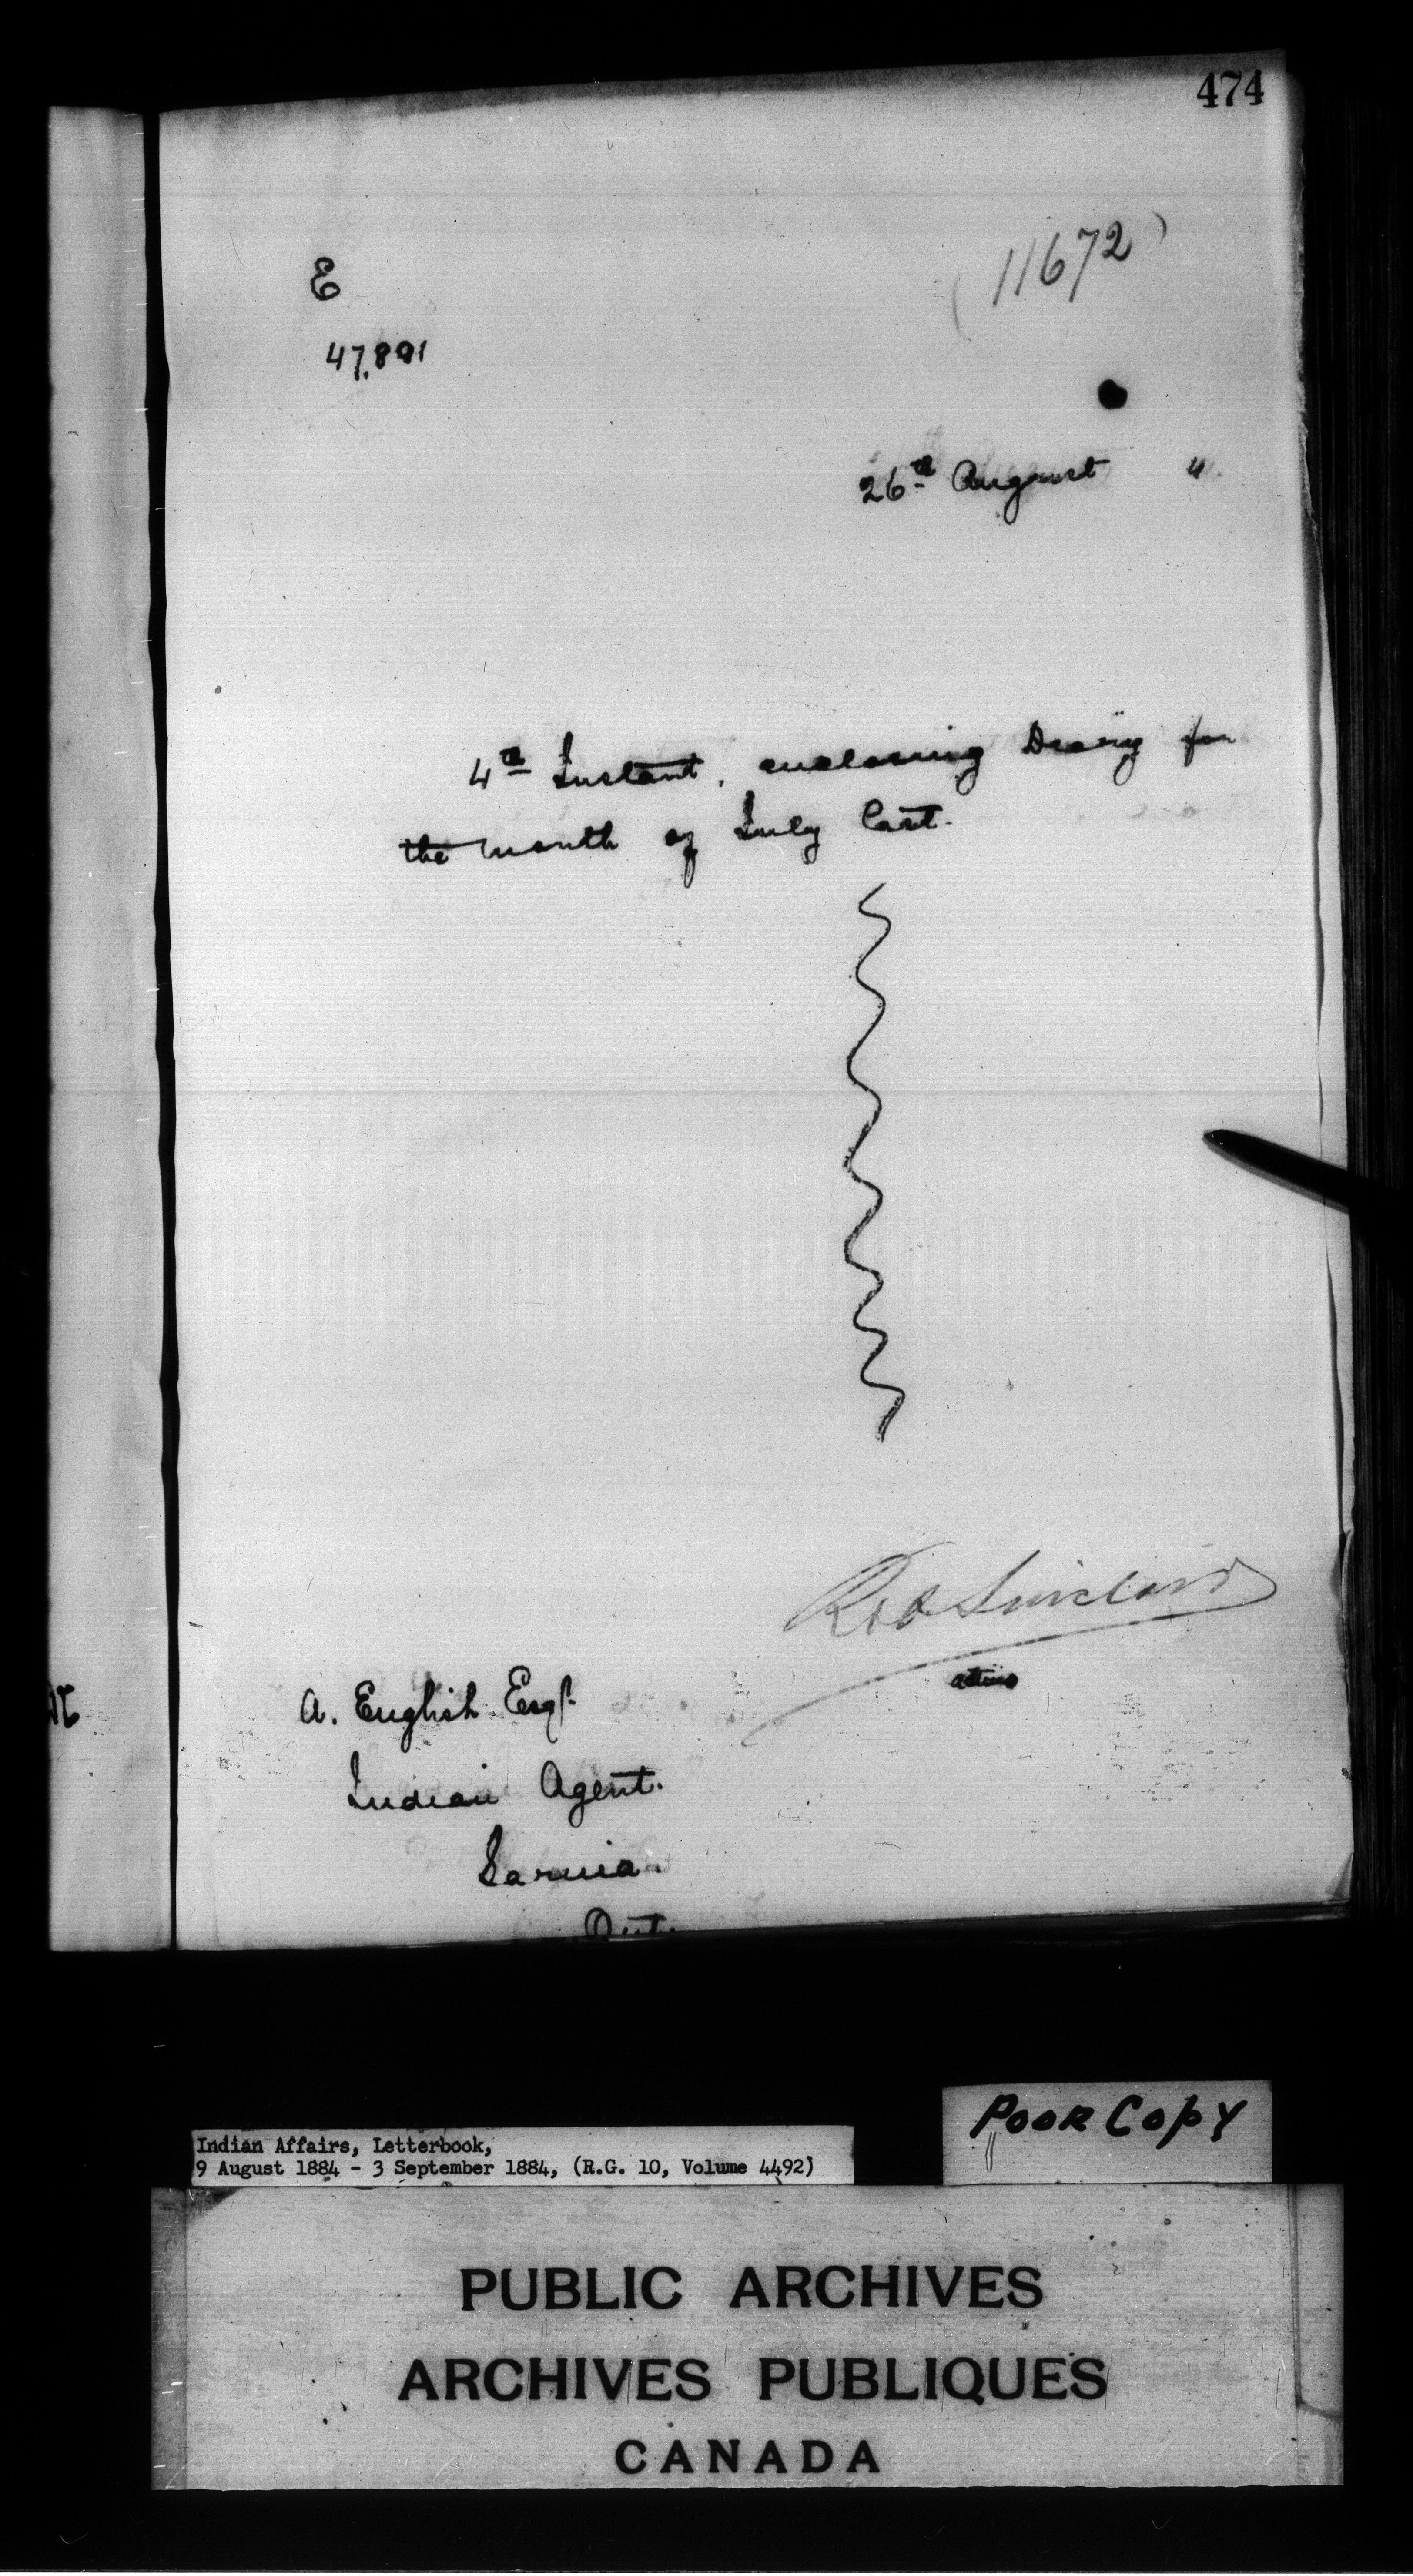 474
11672
E
47,891
26th August 4.
4th Instant, enclosing Diary for
the month of July last.
Rob Sinclair
acting
A. English Esqr.
Indian Agent.
Sarnia.
Ont.
POOR COPY
Indian Affairs, Letterbook,
9 August 1884 - 3 September 1884, (R.G. 10, Volume 4492)
PUBLIC ARCHIVES
ARCHIVES PUBLIQUES
CANADA